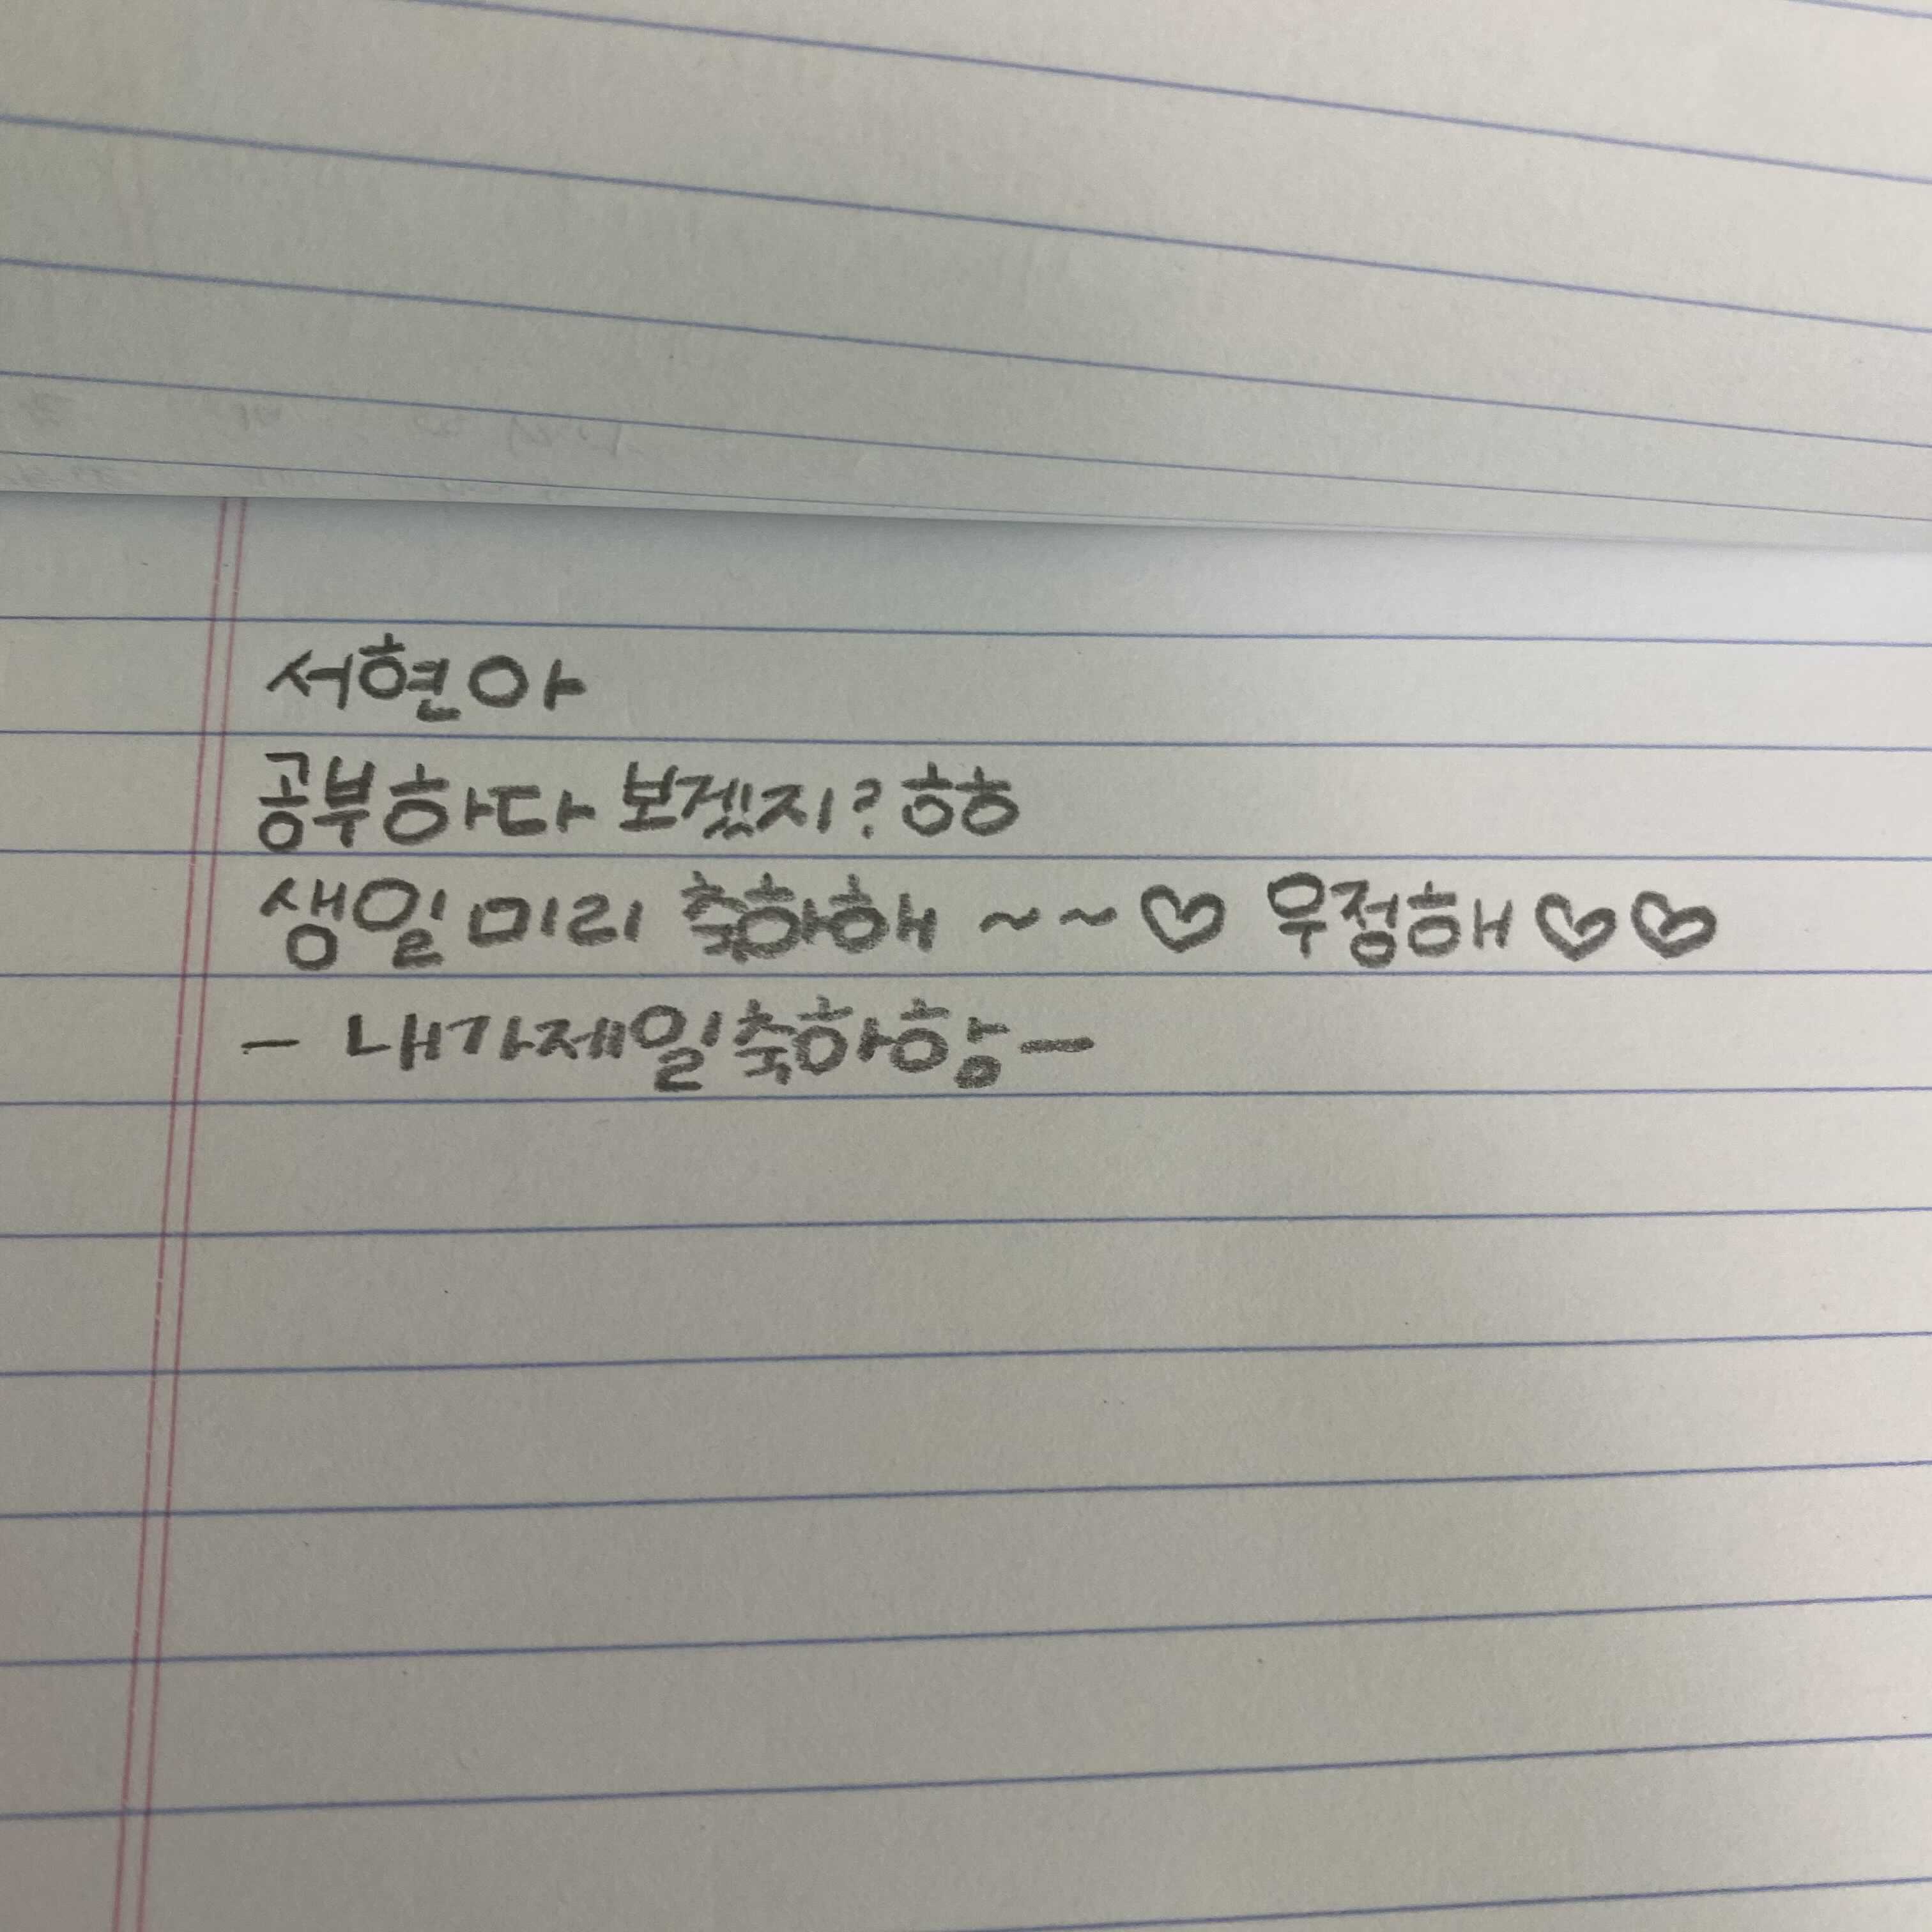 서현아
공부하다 보겠지? ㅎㅎ
생일 미리 축하해 ~~♡ 우정해♡♡
- 내가제일축하함-